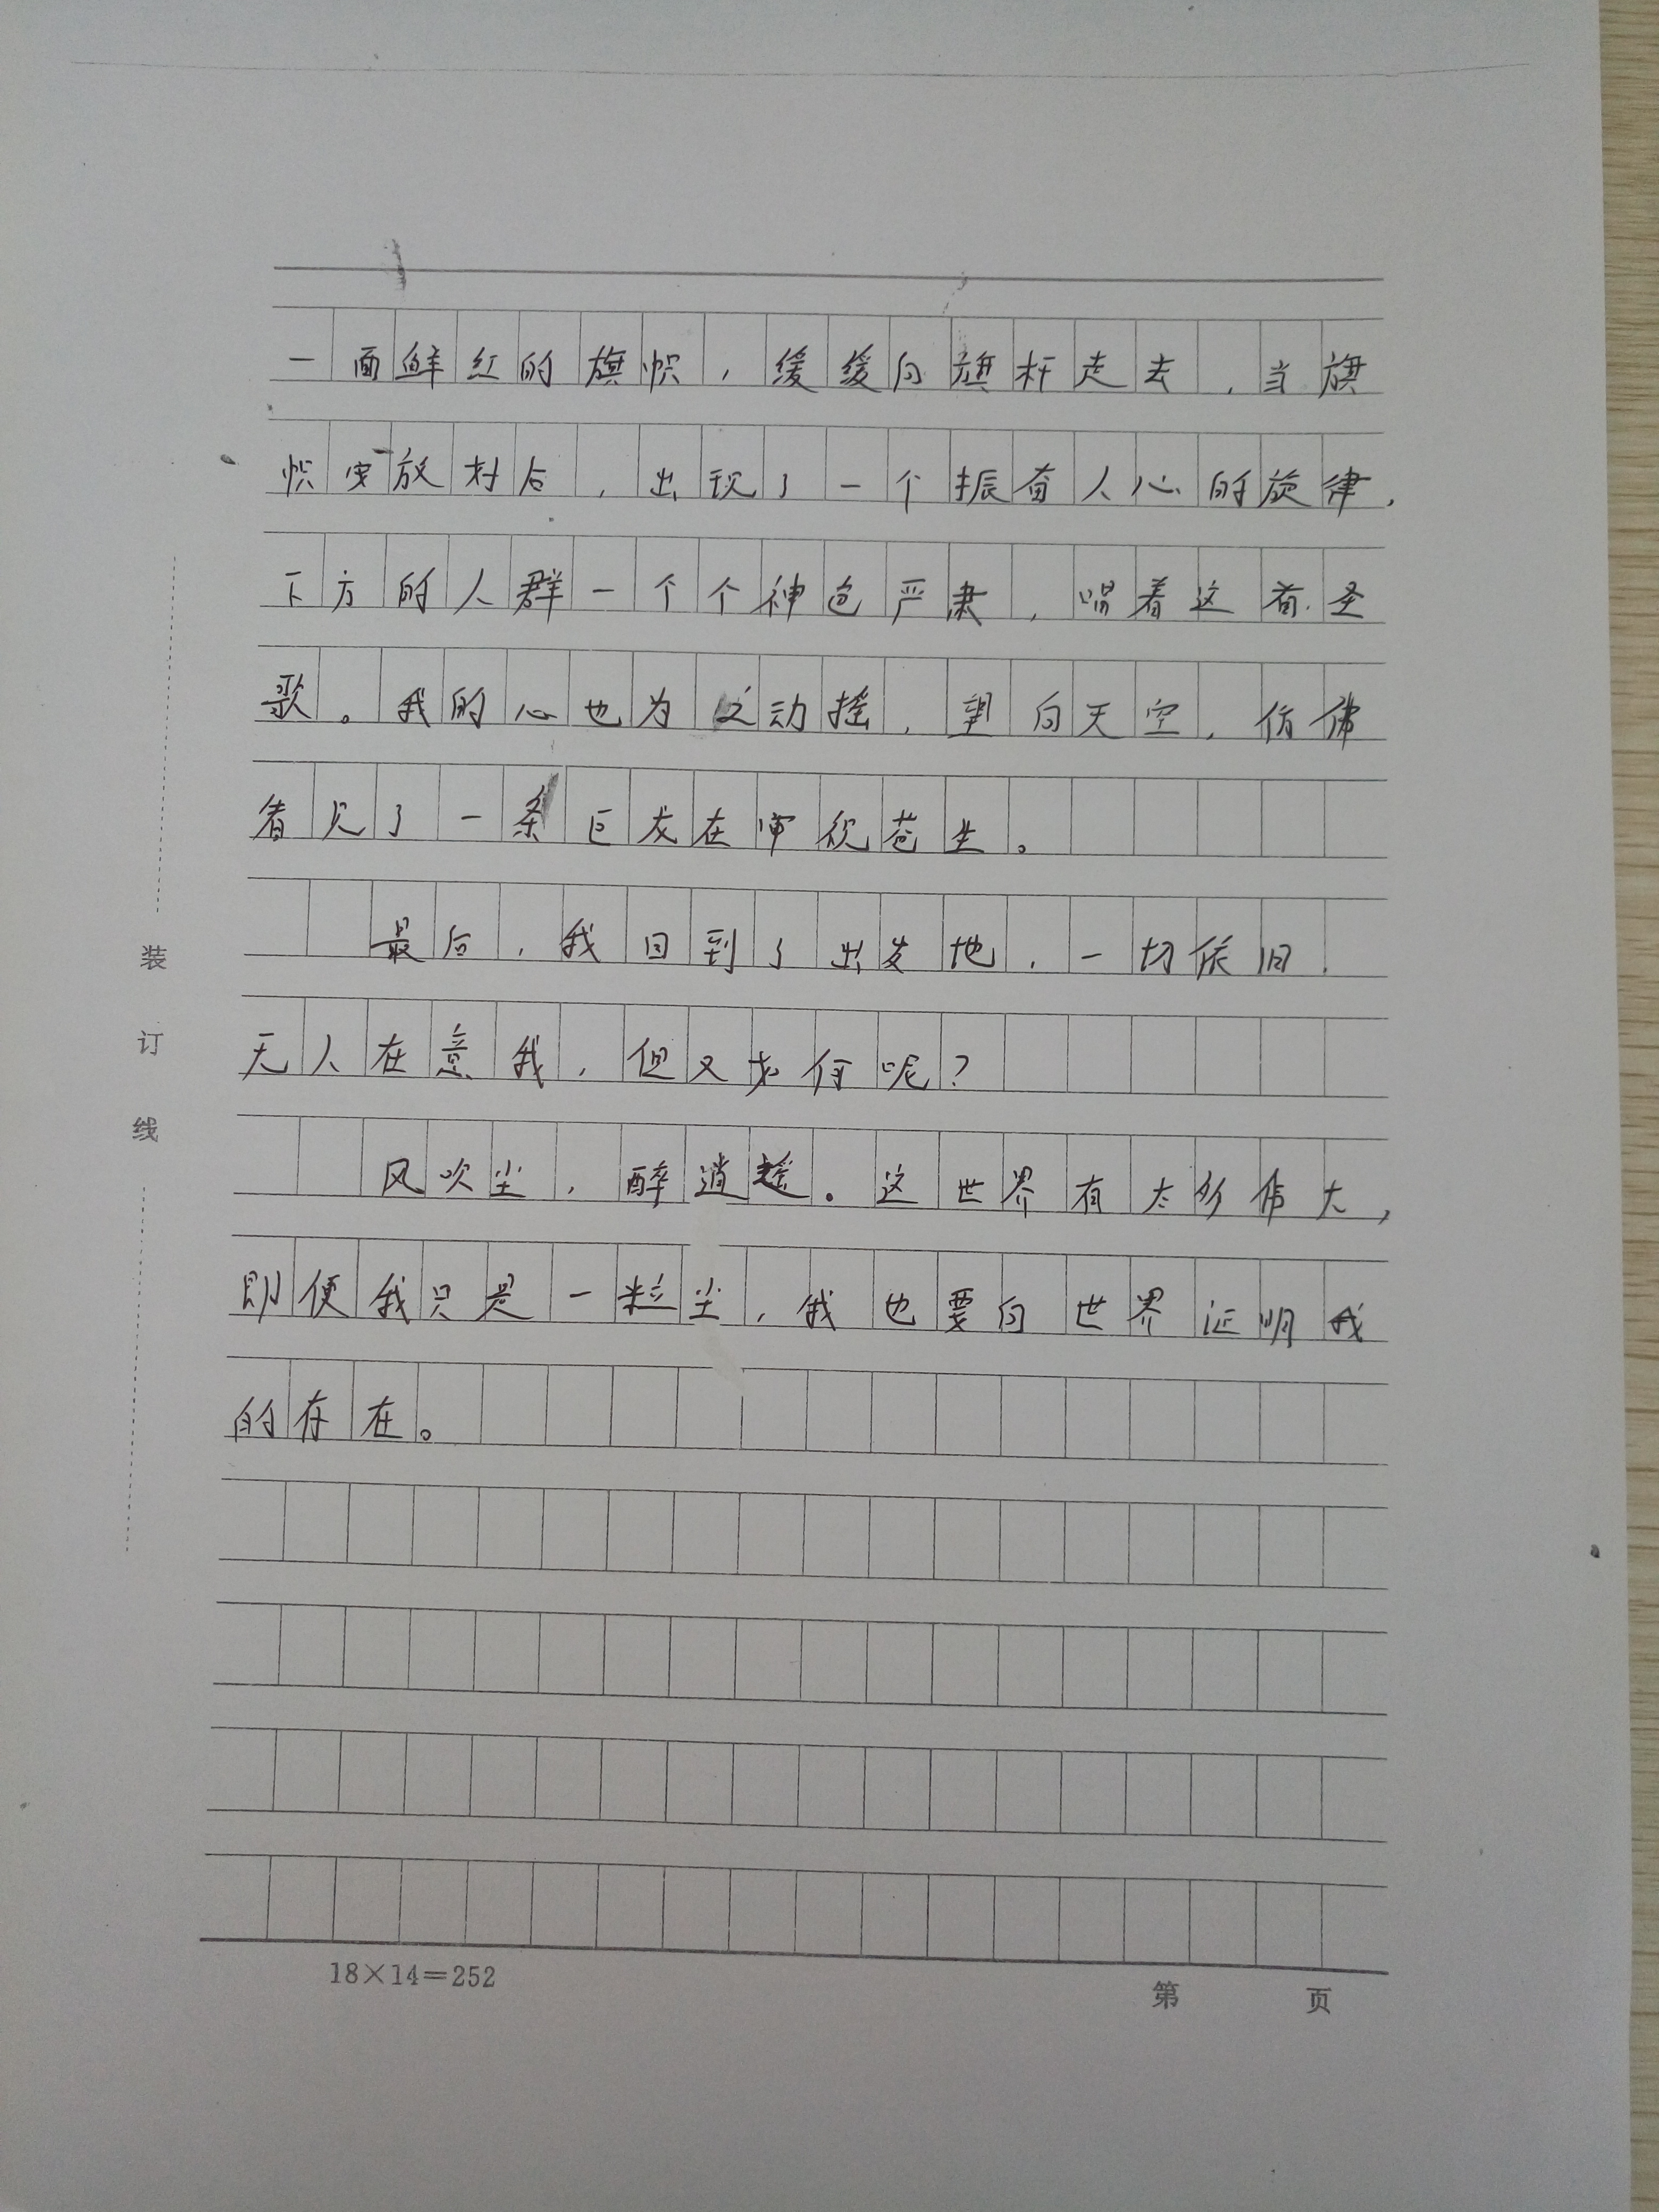 一面鲜红的旗帜，缓缓向旗杆走去，当旗
帜安放村后，出现了一个振奋人心的旋律，
下方的人群一个个神色严肃，唱着这首圣
歌。我的心也为之动摇，望向天空，仿佛
看见了一条巨龙在审视苍生。
最后，我回到了出发地，一切依旧，
无人在意我，但又如何呢？
风吹尘，醉逍遥。这世界有太多伟大，
即便我只是一粒尘，我也要向世界证明我
的存在。
装
订
线
18×14＝252
第 页